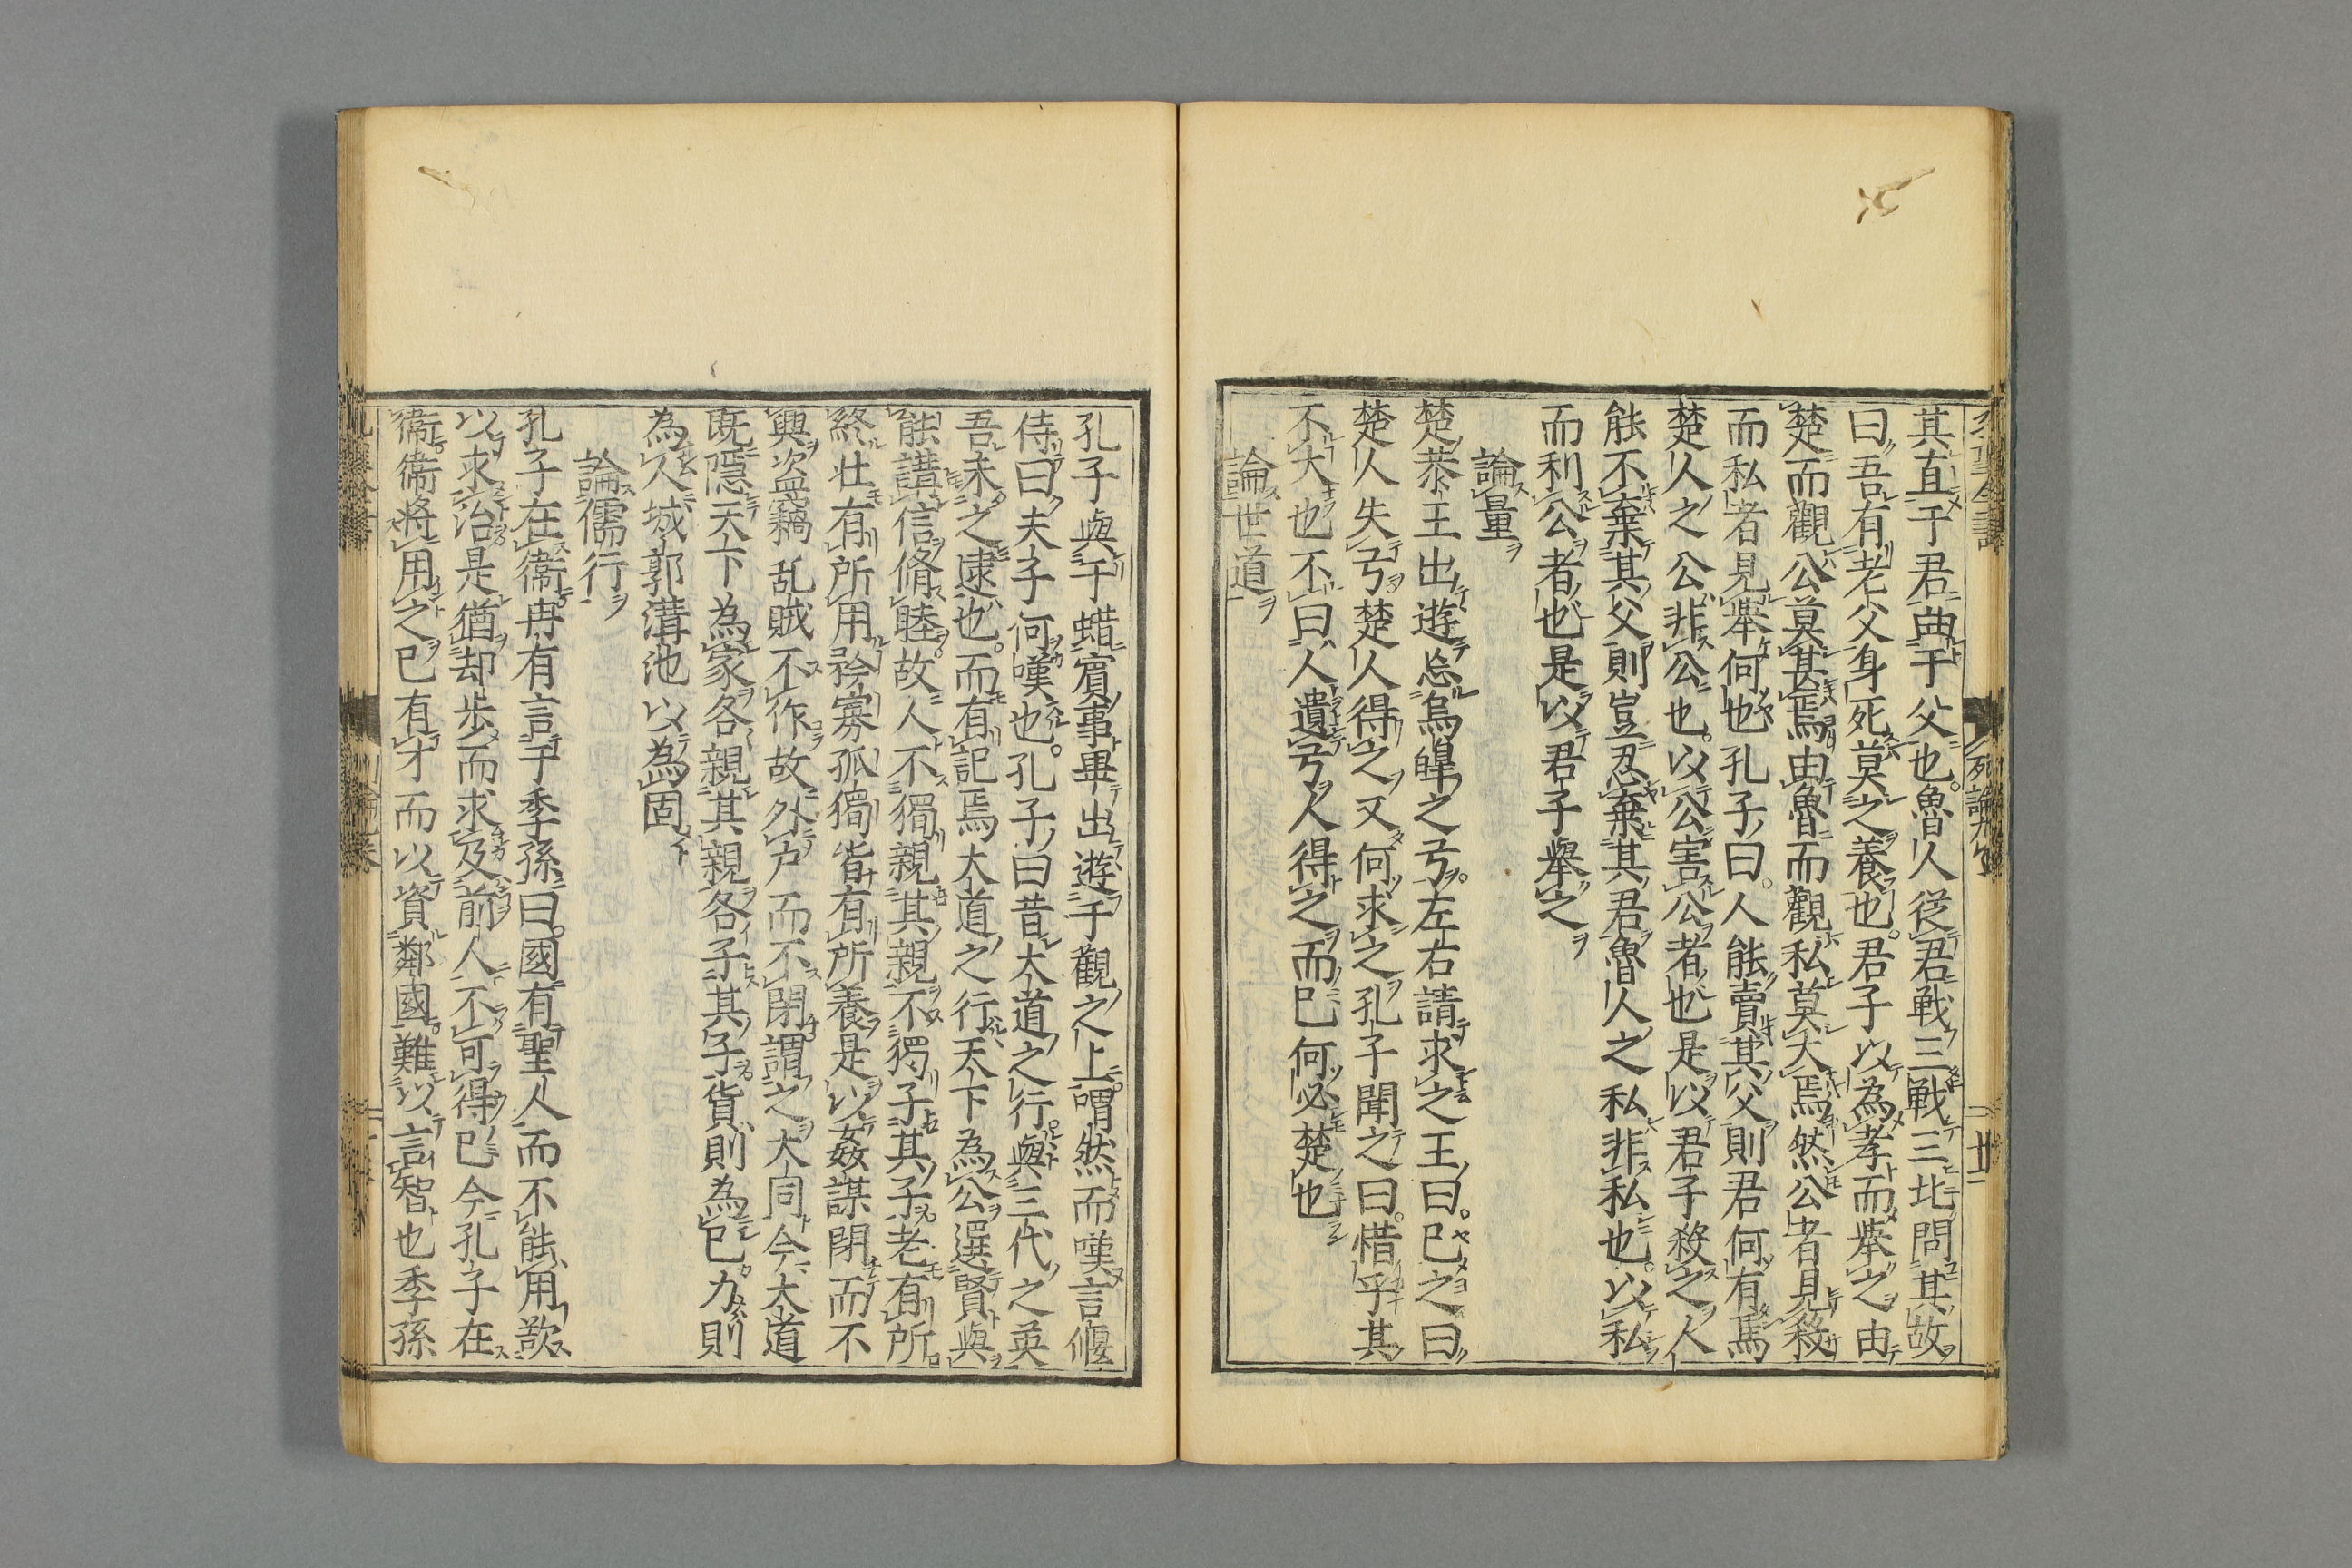 其直于君曲于父也。魯人從君戰三戰三北問其故
曰吾有老父身死莫之養也。君子以為孝而舉之由
楚而觀公莫甚焉由魯而觀私莫大焉然公者見殺
而私者見舉何也孔子曰。人能賣其父則君何有焉
楚人之公非公也。以公害公者也是以君子殺之人
能不棄其父則豈忍棄其君魯人之私非私也。以私
而利公者也是以君子舉之
論量
楚恭王出遊忘烏皥之弓。左右請求之王曰。已之曰
楚人失弓。楚人得之又何求之孔子聞之曰。惜乎其
不大也不曰人遺弓人得之而已何必楚也
論世道
孔子與于蜡賓事畢出遊于觀之上。喟然而嘆言偃
侍曰夫子何嘆也。孔子曰昔大道之行與三代之英
吾未之逮也。而有記焉大道之行天下為公選賢與
能講信脩睦。故人不獨親其親不獨子其子老有所
終壯有所用矜寡孤獨皆有所養是以姦謀閉而不
興盜竊乱賊不作故外户而不閉謂之大同今大道
既隱天下為家各親其親各子其子貨則為已力則
為人城郭溝池以為固
論儒行
孔子在衞。冉有言于季孫曰。國有聖人而不能用欲
以求治是猶却歩而求及前人不可得已今孔子在
衞。衞將用之已有才而以資鄰國。難以言智也季孫